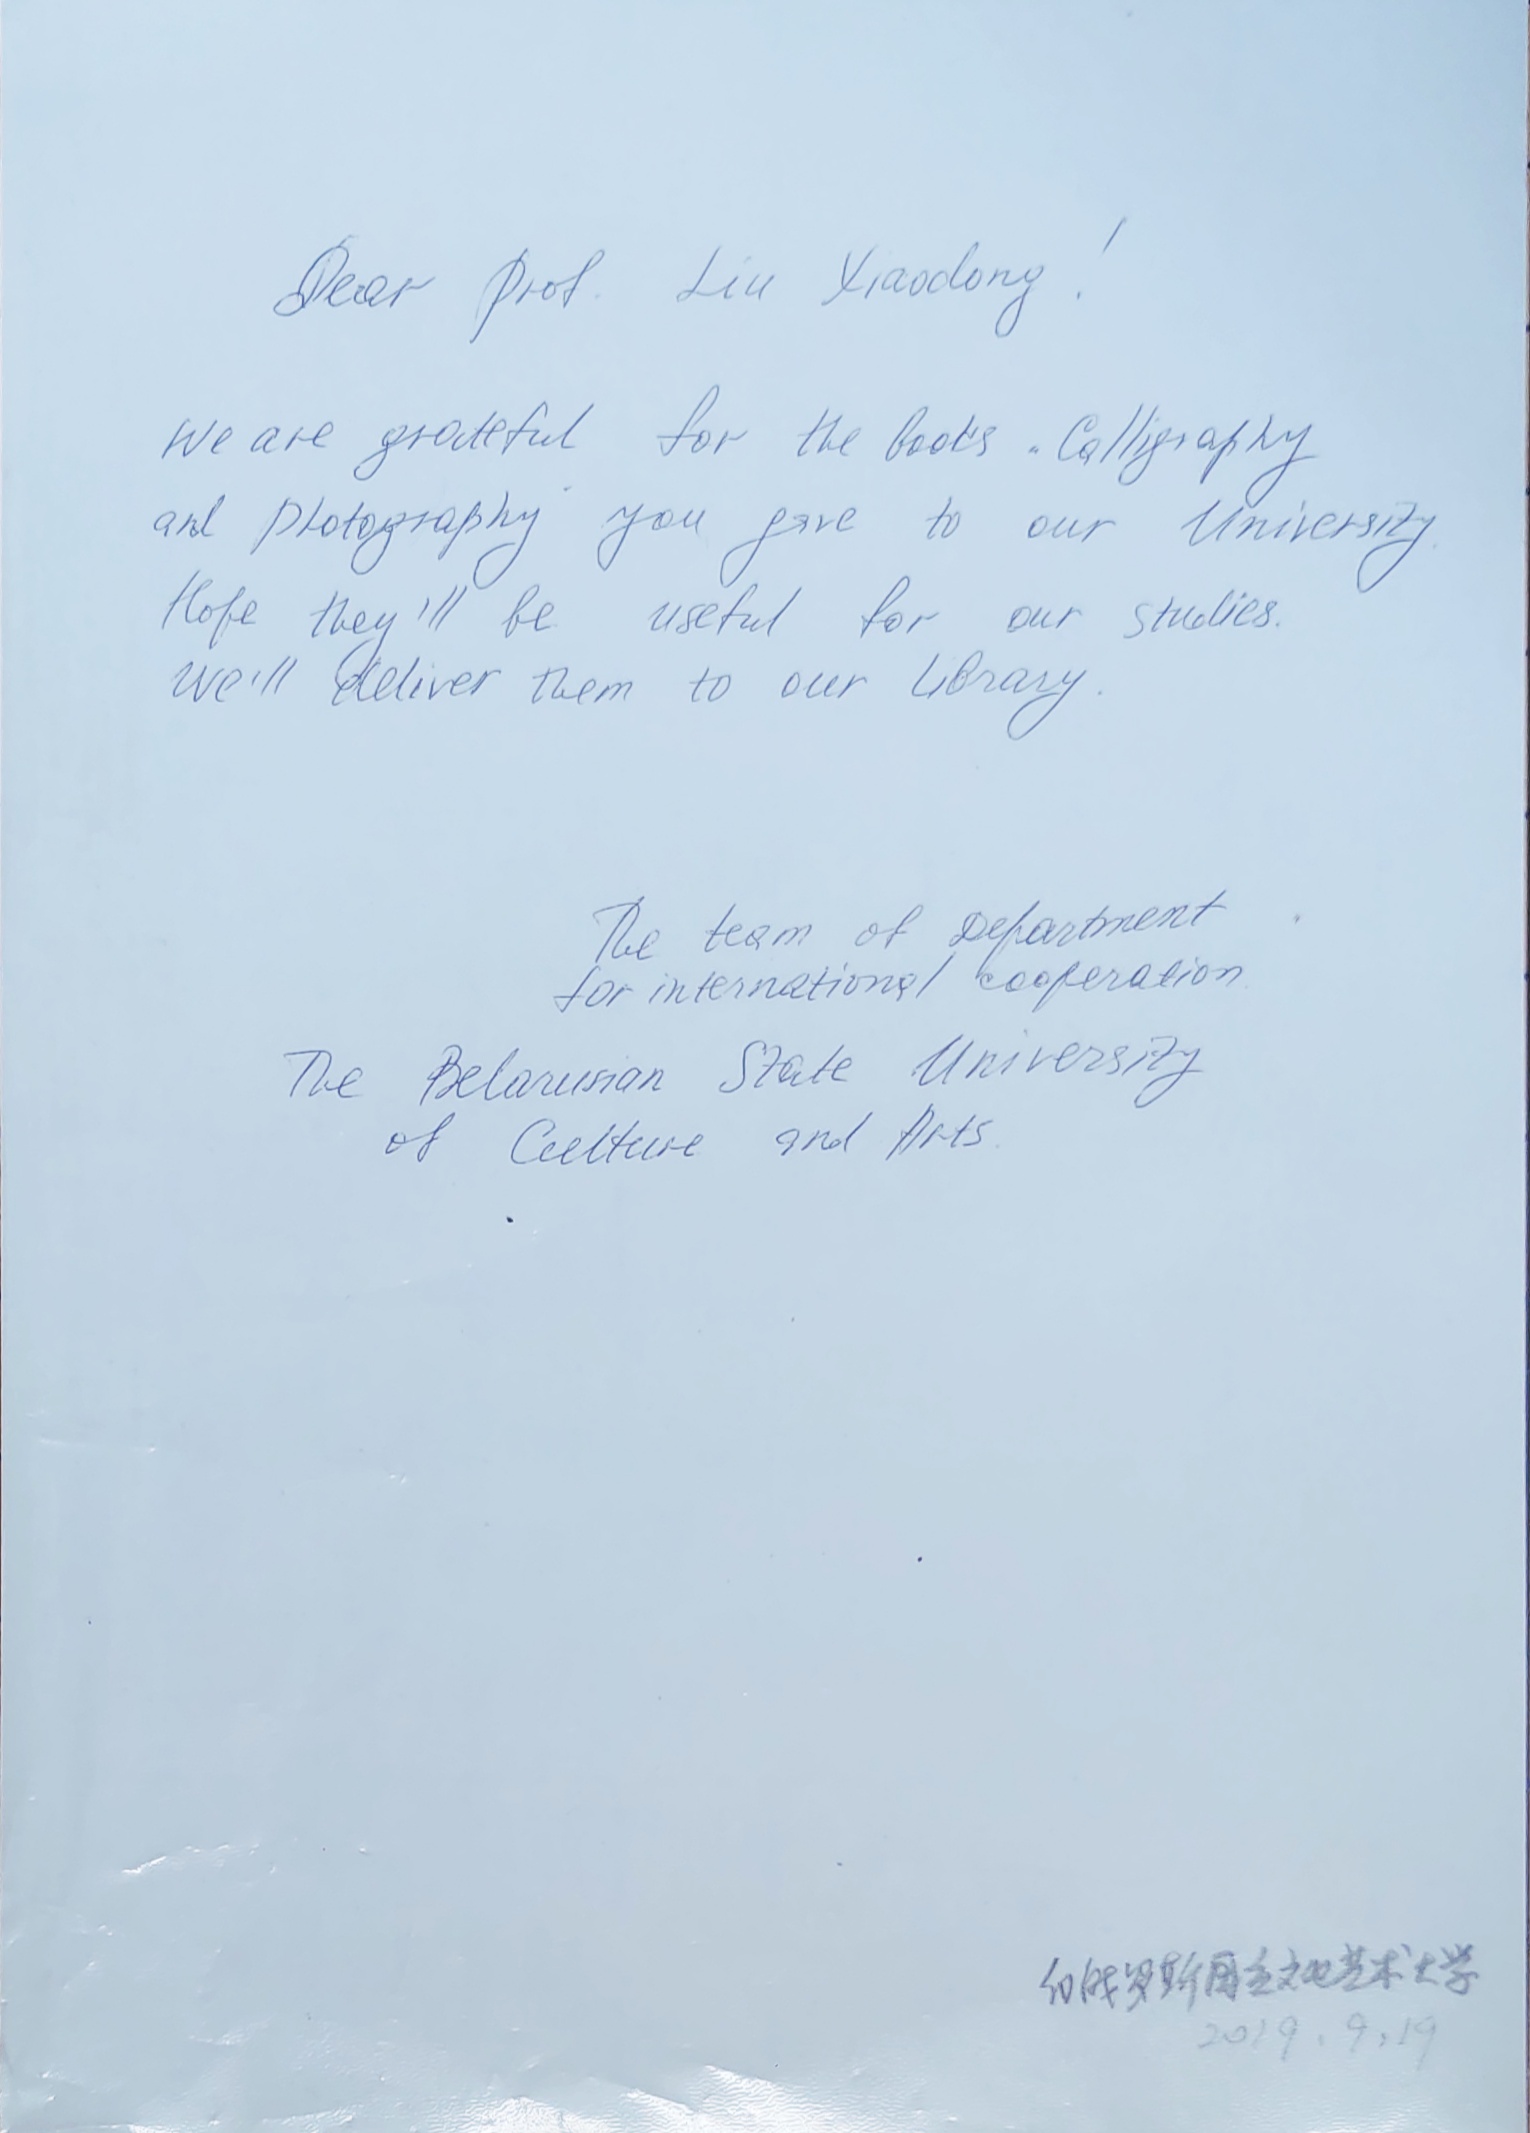 Dear Prof. Liu Xiaodong!
We are grateful for the books „Calligraphy
and Photography" you gave to our University.
Hope they'll be useful for our studies.
We'll deliver them to our Library.
The team of Department
for international cooperation
The Belarusian State University
of Culture and Arts.
白俄罗斯国立文化艺术大学
2019.9.19